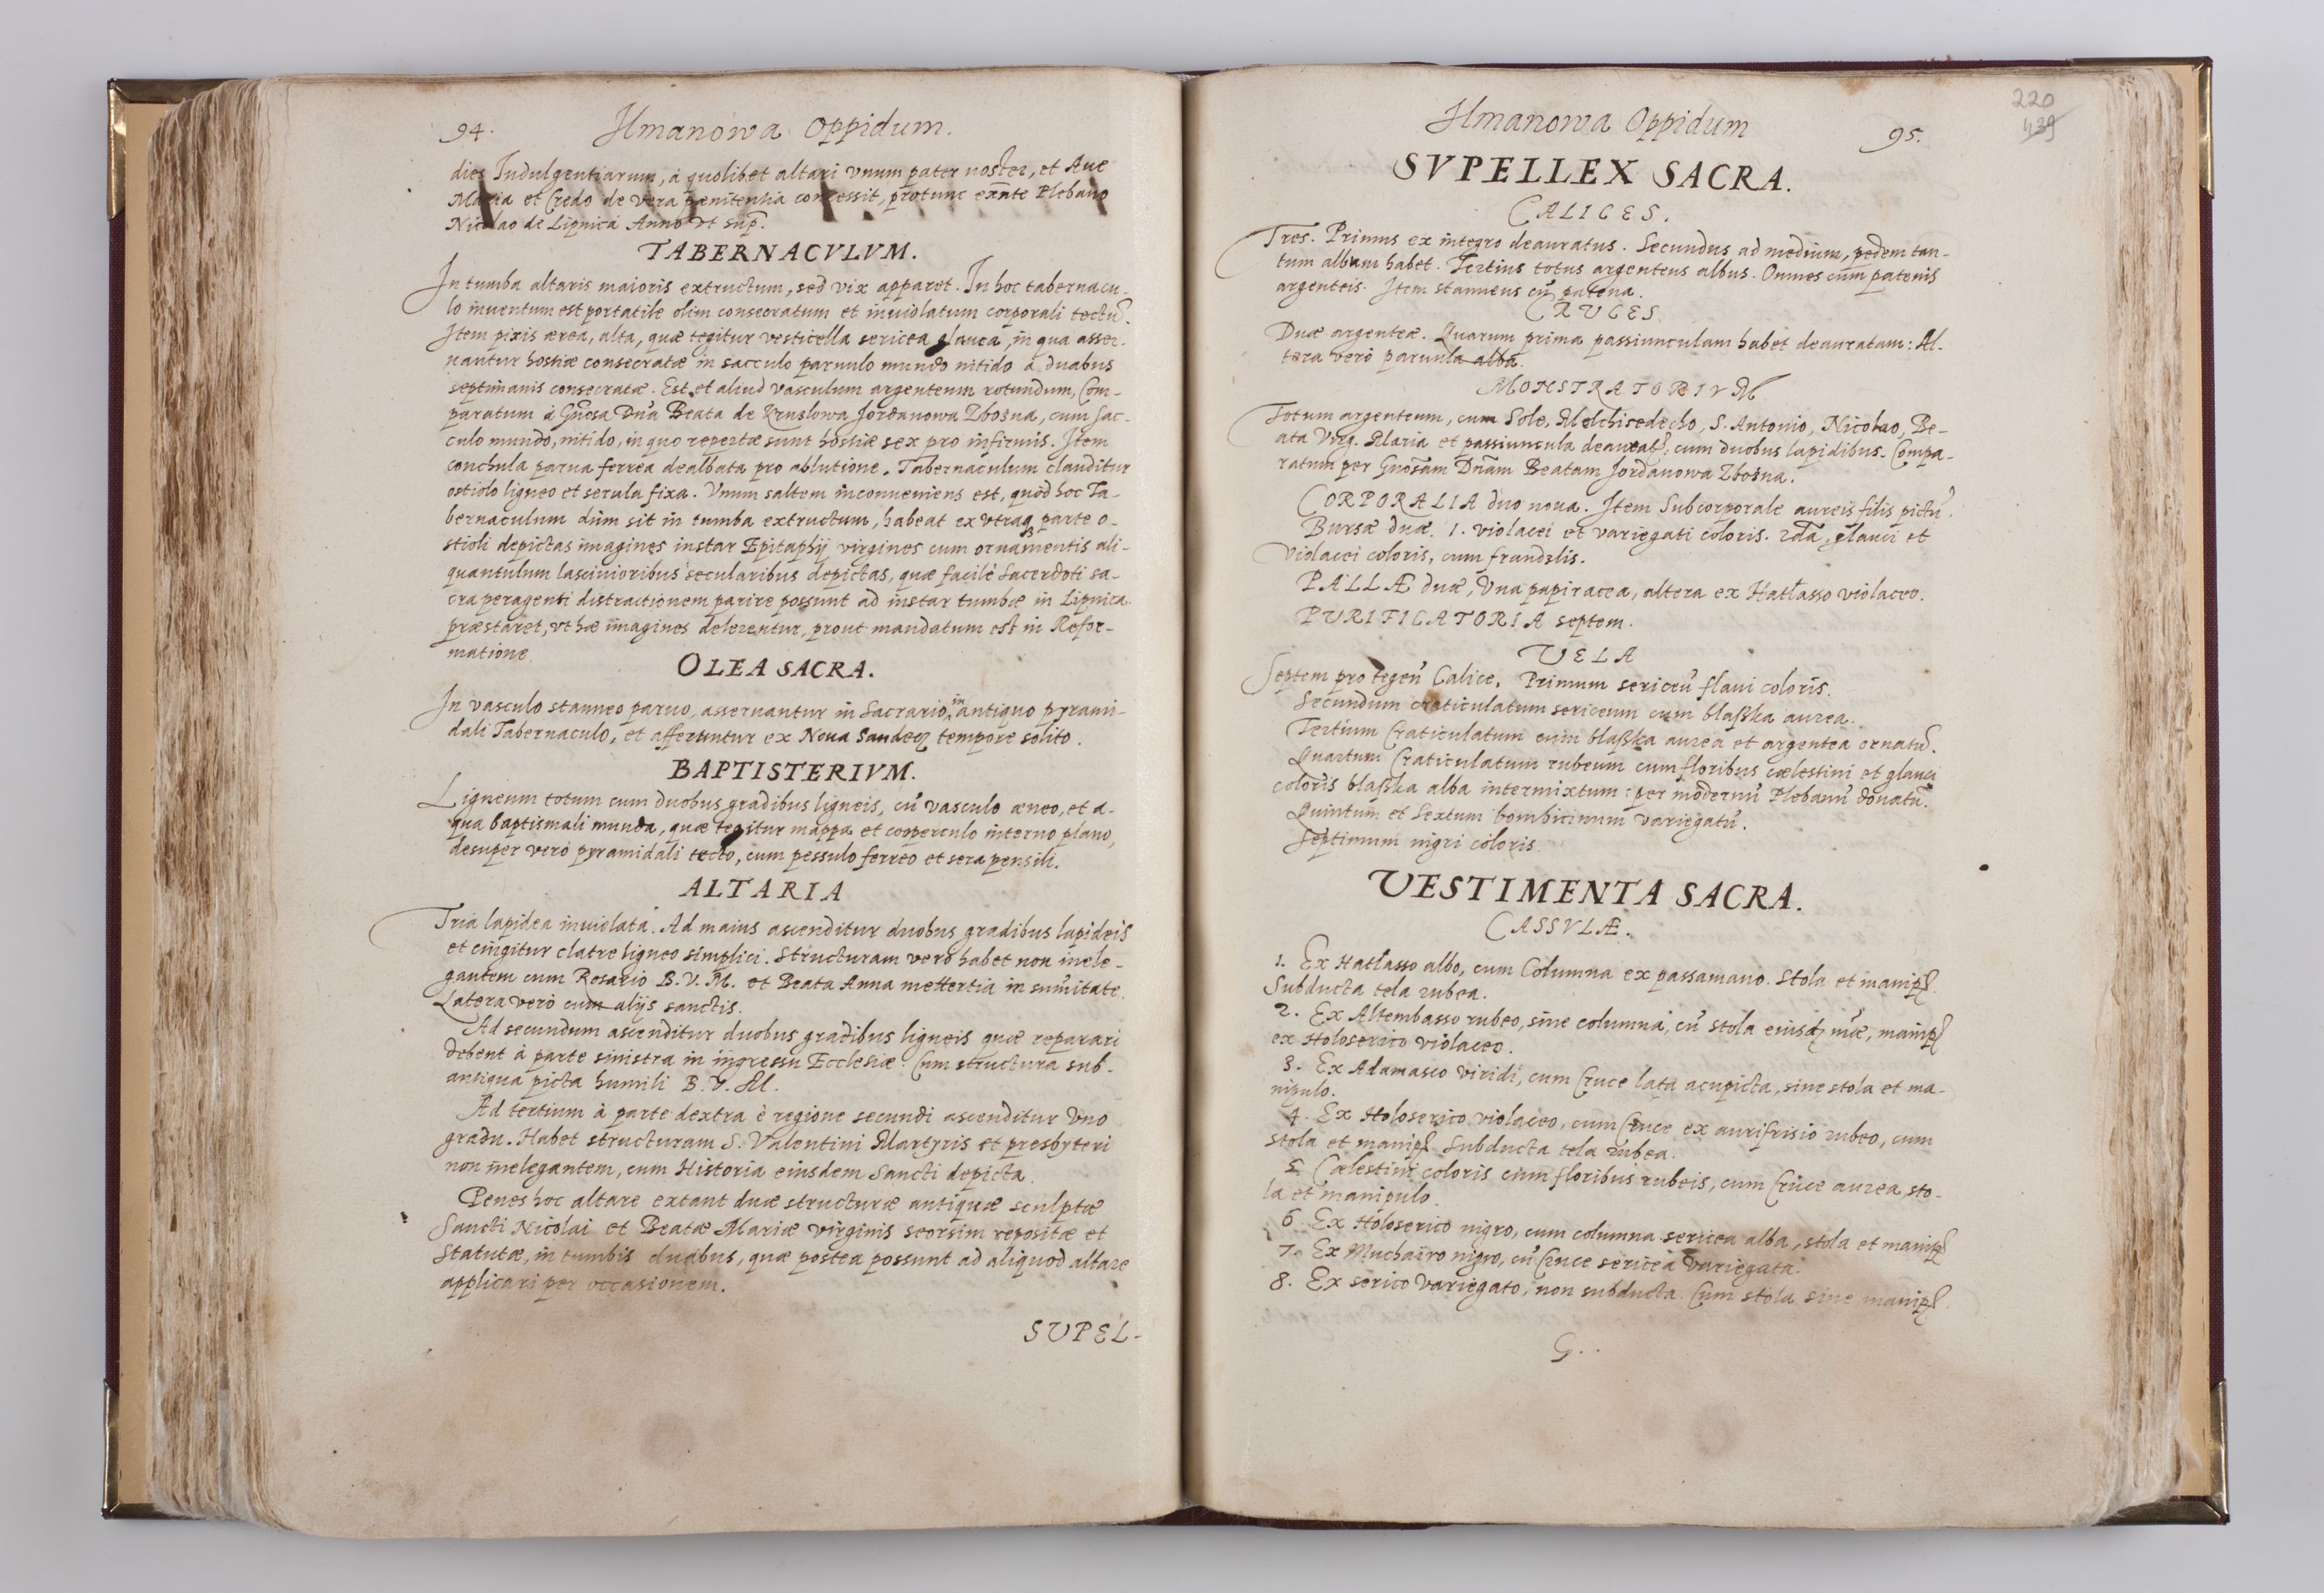 94. Ilmanowa Oppidum.
dies Indulgentiarum, à quolibet altari vnum pater noster, et Aue
Maria et Credo de vera pænitentia concessit, protunc exñte Plebano
Nicolao de Lipnica Anno vt sup.
TABERNACVLVM.
In tumba altaris maioris extructum, sed vix apparet. In hoc tabernacu-
lo inuentum est portatile olim consecratum et inuiolatum corporali tectũ.
Item pixis ærea, alta, quæ tegitur vesticella sericea glauca, in qua asser-
nantur hostiæ consecratæ in sacculo paruulo mundo nitido à duabus
septimanis consecratæ. Est et aliud vasculum argenteum rotundum, Com-
paratum à Gñosa Dña Beata de Kruslowa Jordanowa Zbośna, cum sac-
culo mundo, nitido, in quo repertæ sunt hostiæ sex pro infirmis. Item
conchula parua ferrea dealbata pro ablutione. Tabernaculum clauditur
ostiolo ligneo et serula fixa. Vnum saltem inconueniens est, quòd hoc Ta-
bernaculum dùm sit in tumba extructum, habeat ex vtraq parte o-
stioli depictas imagines instar Epitaphij virgines cum ornamentis ali-
quantulum lasciuioribus secularibus depictas, quæ facilè Sacerdoti sa-
cra peragenti distractionem parire possunt ad instar tumbæ in Lipnica.
præstaret, vt hæ imagines delerentur, prout mandatum est in Refor-
matione
OLEA SACRA.
In vasculo stanneo paruo, asseruantur in Sacrario, in antiquo pyrami-
dali Tabernaculo, et afferuntur ex Noua Sandecz tempore solito.
BAPTISTERIVM.
Ligneum totum cum duobus gradibus ligneis, cũ vasculo æneo, et a-
qua baptismali munda, quæ tegitur mappa et cooperculo interno plano,
desuper verò pyramidali tecto, cum pessulo ferreo et sera pensili.
ALTARIA
Tria lapidea inuiolata. Ad maius ascenditur duobus gradibus lapideis
et cingitur clatre ligneo simplici. Structuram verò habet non inele-
gantem cum Rosario B. V. M. et Beata Anna mettertia in sum̃itate.
Latera verò cum alijs sanctis.
Ad secundum ascenditur duobus gradibus ligneis quæ reparari
debent à parte sinistra in ingressu Ecclesiæ. Cum structura sub-
antiqua picta humili B. V. M.
Ad tertium à parte dextra è regione secundi ascenditur vno
gradu. Habet structuram S. Valentini Martyris et presbyteri
non inelegantem, cum Historia eiusdem Sancti depicta.
Penes hoc altare extant duæ structuræ antiquæ sculptæ
Sancti Nicolai et Beatæ Mariæ virginis seorsim repositæ et
Statutæ, in tumbis duabus, quæ postea possunt ad aliquod altare
applicari per occasionem.
SUPEL-
Ilmanowa Oppidum 95.
220
439
SVPELLEX SACRA.
CALICES.
Tres. Primus ex integro deauratus. Secundus ad medium, pedem tan-
tum album habet. Tertius totus argenteus albus. Omnes cum patenis
argenteis. Item stanneus cũ patena.
CRUCES
Duæ argenteæ. Quarum prima passiunculam habet deauratam: Al-
tera verò paruula alba.
MONSTRATORIVM.
Totum argenteum, cum Sole, Melchisedecho, S. Antonio, Nicolao, Be-
ata Virg. Maria et passiuncula deaurat, cum duobus lapidibus. Compa-
ratum per Gnosam Dnam Beatam Jordanowa Zbośna.
CORPORALIA duo noua. Item Subcorporale aureis filis pictũ.
Bursæ duæ. 1. violacei et variegati coloris. 2da, glauci et
violacei coloris, cum frandzlis.
PALLÆ duæ, Vna papiracea, altera ex Hatłasso violaceo.
PURIFICATORIA septem.
VELA
Septem pro tegen Calice. Primum sericeũ flaui coloris.
Secundum craticulatum sericeum cum blaszka aurea.
Tertium Craticulatum cum blaszka aurea et argentea ornatũ.
Quartum Craticulatum rubeum cum floribus cælestini et glauci
coloris blaszka alba intermixtum: per modernũ Plebanũ donatũ.
Quintum et Sextum bombicinum variegatũ.
Septimum nigri coloris.
VESTIMENTA SACRA.
CASSVLÆ.
1. Ex Hatłasso albo, cum Columna ex passamano. Stola et manip.
Subducta tela rubea.
2. Ex Altembasso rubeo, sine columna, cũ stola eiusd, manip
ex Holoserico violaceo.
3. Ex Adamasco viridi, cum Cruce lata acupicta, sine stola et ma-
nipulo.
4. Ex Holoserico violaceo, cum Cruce ex aurifrisio rubeo, cum
stola et manip. Subducta tela rubea.
5. Cælestini coloris cum floribus rubeis, cum Cruce aurea, sto-
la et manipulo.
6. Ex Holoserico nigro, cum columna sericea alba, stola et manip
7. Ex Muchairo nigro, cũ Cruce sericea variegata.
8. Ex serico variegato, non subducta. Cum stola sine manip.
G..